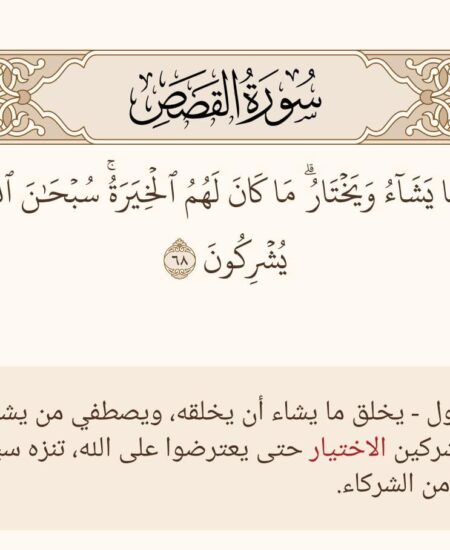 سُورَةُ القَصَصِ
يَشَآءُ وَيَخۡتَارُۗ مَا كَانَ لَهُمُ ٱلۡخِيَرَةُۚ سُبۡحَٰنَ
يُشۡرِكُونَ ٦٨
- يخلق ما يشاء أن يخلقه، ويصطفي من
الاختيار حتى يعترضوا على الله، تنزه
من الشركاء.